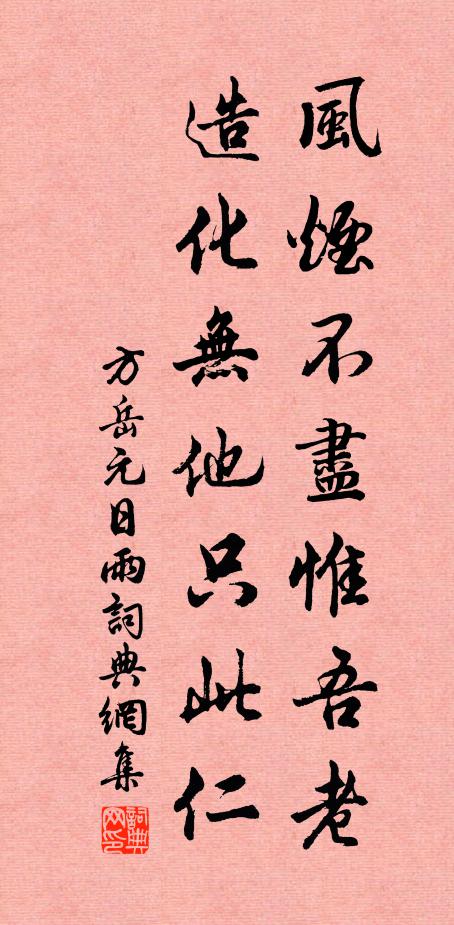 風煙不盡惟吾老
造化無他只此仁
方岳元日雨詞典網集
詞典网印